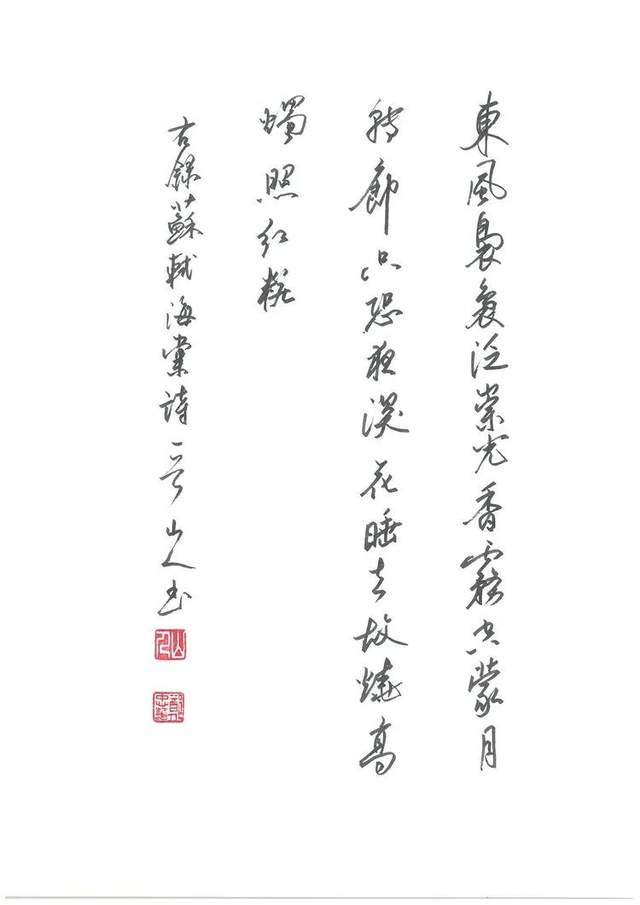 東風裊裊泛崇光香霧空蒙月
轉廊只恐夜深花睡去故燒高
燭照紅粧
右錄蘇軾海棠詩山人书
山人